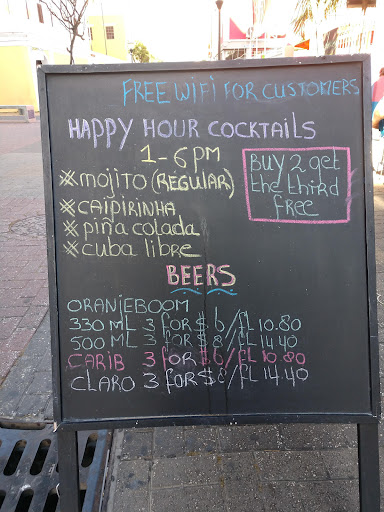 FREE WIFI FOR CUSTOMERS
HAPPY HOUR COCKTAILS
1-6 PM
*MOJITO (REGULAR)
*CAÏPIRINHA
*PIÑA COLADA
*CUBA LIBRE
BUY 2 get
the third
FREE
BEERS
ORANJEBOOM
330 ML 3 FOR $ 6/fL 10.80
500 ML 3 FOR $ 8/fL 14.40
CARIB 3 FOR $ 6/fL 10.80
CLARO 3 FOR $ 8/fL 14.40